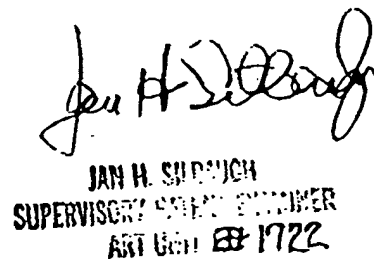 Jan H. Silbaugh
JAN H. SILBAUGH
SUPERVISORY PATENT EXAMINER
ART UNIT 1722